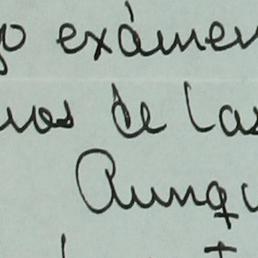 go exámen
unos de las
Aunqu